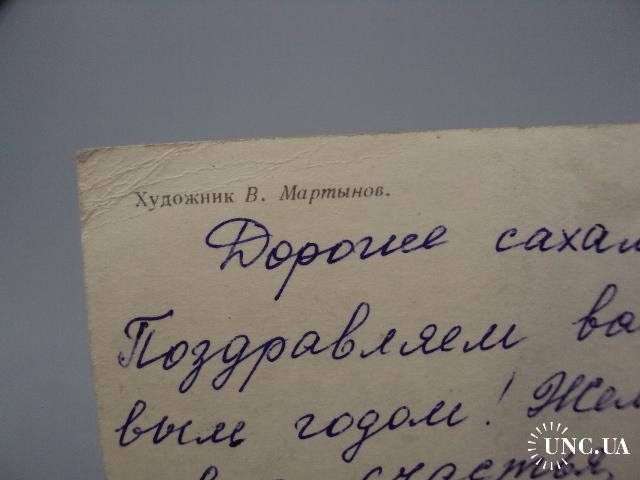 Художник В. Мартынов.
Дорогие сахал
Поздравляем ва
вым годом! Жел
счастья,
UNC.UA